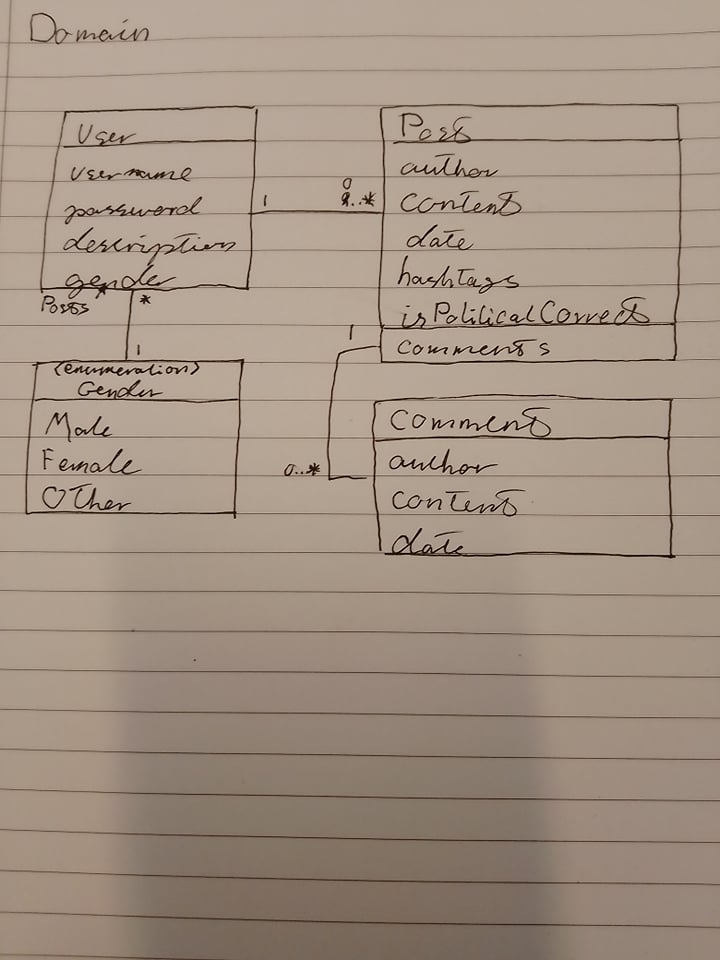 Domain
User
username
password
description
gender
Posts
*
1
1
0
0..*
Post
author
content
date
hashtags
isPoliticalCorrect
comments
1
0..*
<enumeration>
Gender
Male
Female
Other
Comment
author
content
date